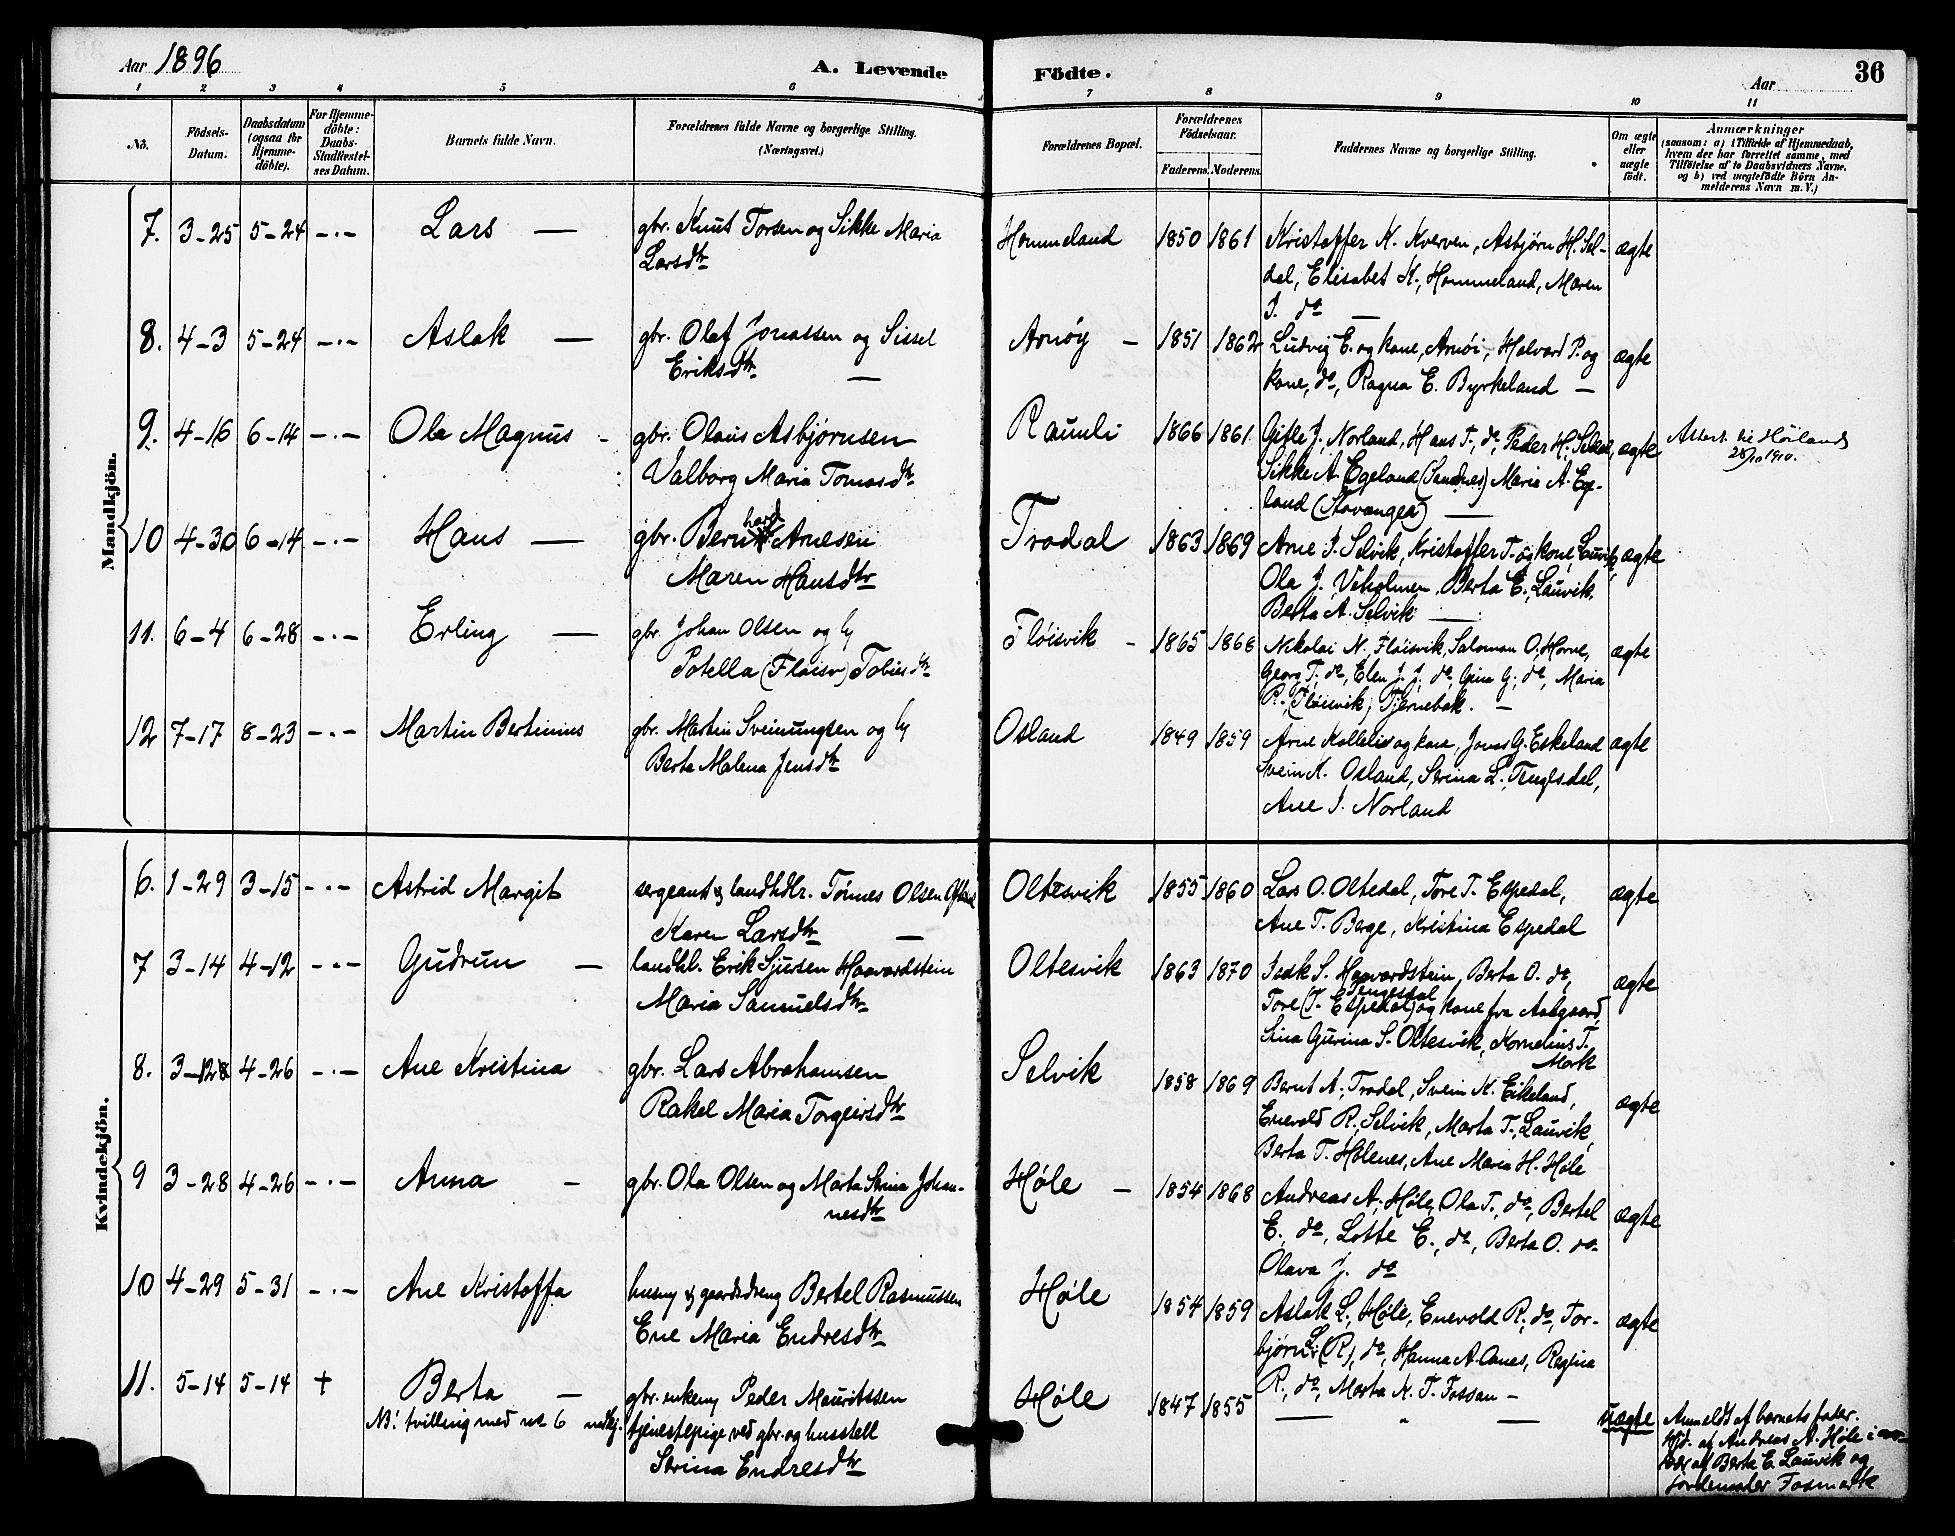 Aar 1896
A. Levende Födte.
Aar
36
1 2 3 4 5 6 7 8 9 10 11
No.
Födsels-
Datum.
Daabsdatum
(ogsaa for
Hjemme-
döbte).
For Hjemme-
döbte:
Daabs-
Stadfæstel-
ses Datum.
Barnets fulde Navn.
Forældrenes fulde Navne og borgerlige Stilling.
(Næringsvei.)
Forældrenes Bopæl.
Forældrenes
Födselsaar.
Faderens. Moderens.
Faddernes Navne og borgerlige Stilling.
Om ægte
eller
uægte
födt.
Anmærkninger
(saasom: a) i Tilfælde af Hjemmedaab,
hvem der har forrettet samme, med
Tilföielse af to Daabsvidners Navne.
og b) ved uægtefödte Börn An-
melderens Navn m. V.)
Mandkjön.
7. 3-25 5-24 -.- Lars — gbr. Knut Torsen og Sikke Maria
Larsdtr
Hommeland 1850 1861 Kristoffer K. Kverven, Asbjørn H. Sel-
dal, Elisabet K., Hommeland, Maren
I. do —
ægte
8. 4-3 5-24 -.- Aslak — gbr. Olaf Jonassen og Sissel
Eriksdtr —
Arnøy — 1851 1862 Ludvig E. og kone, Arnøi, Halvard P. og
kone, do, Ragna E. Byrkeland —
ægte
9. 4-16 6-14 -.- Ole Magnus - gbr. Olaus Asbjørnsen
Valborg Maria Tomasdtr
Raunli 1866 1861 Gitle J. Norland, Hans T., do, Peder H. Seldal,
Sikke A. Egeland (Sandnes) Maria A. Ege-
land (Stavanger) —
ægte
Attest til Høiland
28/10 1910.
10 4-30 6-14 -.- Hans — gbr. Bernhard Arnesen
Maren Hansdtr
Trodal 1863 1869 Arne I. Selvik, Kristoffer T. og kone, Lauvik,
Ola J. Veholmen, Berta E. Lauvik,
Berta A. Selvik —
ægte
11. 6-4 6-28 -.- Erling — gbr. Johan Olsen og
Potella (Fløisv) Tobiasdtr
Fløisvik - 1865 1868 Nikolai N. Fløisvik, Salomon O. Horve,
Georg T., do, Elen J. J., do, Gina G., do, Maria
R. (Fløisvik) Tjernebak. —
ægte
12 7-17 8-23 -.- Martin Bertinius gbr. Martin Sveinungsen og
Berta Malena Jensdtr
Osland 1849 1859 Arne Kolleli og kone, Jonas G. Eskeland
Svein K. Osland, Serina L. Tengesdal,
Ane I. Norland
ægte
Kvindekjön.
6. 1-29 3-15 -.- Astrid Margit sergeant & landhdlr. Tønnes Olsen
Karen Larsdtr —
Oltesvik 1855 1860 Lars O. Oltedal, Tore T. Espedal,
Ane T. Berge, Kristina Espedal
ægte
7 3-14 4-12 -.- Gudrun — landhl. Erik Sjursen Haavardstein
Maria Samuelsdtr
Oltesvik 1863 1870 Isak S. Haavardstein, Berta O. do,
Tengesdal
Tore (T. Espedal) og kone fra Aalgaard,
Sina Gurina S. Oltesvik, Kornelius T.
Mork
ægte
8. 3-12 4-26 -.- Ane Kristina gbr. Lars Abrahamsen
Rakel Maria Torgeirsdtr
Selvik 1858 1869 Bernt A. Trodal, Svein K. Eikeland,
Enevold R. Selvik, Marta T. Lauvik,
Berta T. Holenes, Ane Maria H. Høle
ægte
9 3-28 4-26 -.- Anna — gbr. Ola Olsen og Marta Serina Johan-
nesdtr
Høle — 1854 1868 Andreas A. Høle, Ola T., do, Bertel
E. do, Lotte E., do, Berta O. do
Olava J. do
ægte
10 4-29 5-31 -.- Ane Kristoffa husmy & gaardsdreng Bertel Rasmussen
Ene Maria Endresdtr
Høle 1854 1859 Aslak L., Høle, Enevold R., do, Tor-
bjørn L. (R), do, Hanna A. Aanes, Regina
R., do, Marta K. T. Fossan —
ægte
11. 5-14 5-14 + Berta — gbr. enkem Peder Mauritssen
NB! tvilling med no 6 tjenestepige ved gbr. og husstell
Serina Endresdtr
Høle 1847 1855 — " —
uægte
Anmeldt af barnets fader.
Hjd. af Andreas A. Høle i nær-
vær af Berta E. Lauvik og
jordemoder Fosmark